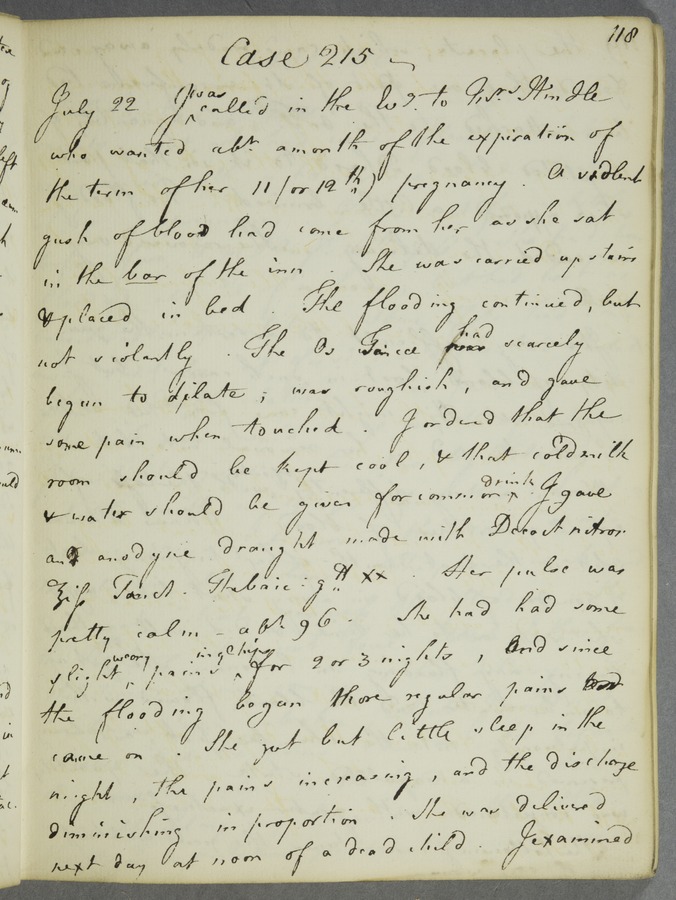 118
Case 215
July 22 I was called in the Eveg. to Mrs Hindle
who wanted abt. a month of the expiration of
the term of her 11 (or 12th) pregnancy. A violent
gush of blood had come from her as she sat
in the bar of the inn. She was carried upstairs
& placed in bed. The flooding continued, but
not violently. The Os Tincæ had scarcely
begun to dilate; was roughish, and gave
some pain when touched. I ordered that the
room should be kept cool, & that cold milk
& water should be given for common drink. I gave
an anodyne draught made with Decoct nitros
℥iſs Tinct. Thebaic: gtt xx. Her pulse was
pretty calm - abt. 96. She had had some
slight weary pains in ye hips for 2 or 3 nights, and since
the flooding began these regular pains
came on. She got but little sleep in the
night, the pains increasing, and the discharge
diminishing in proportion. She was delivered
next day at noon of a dead child. I examined